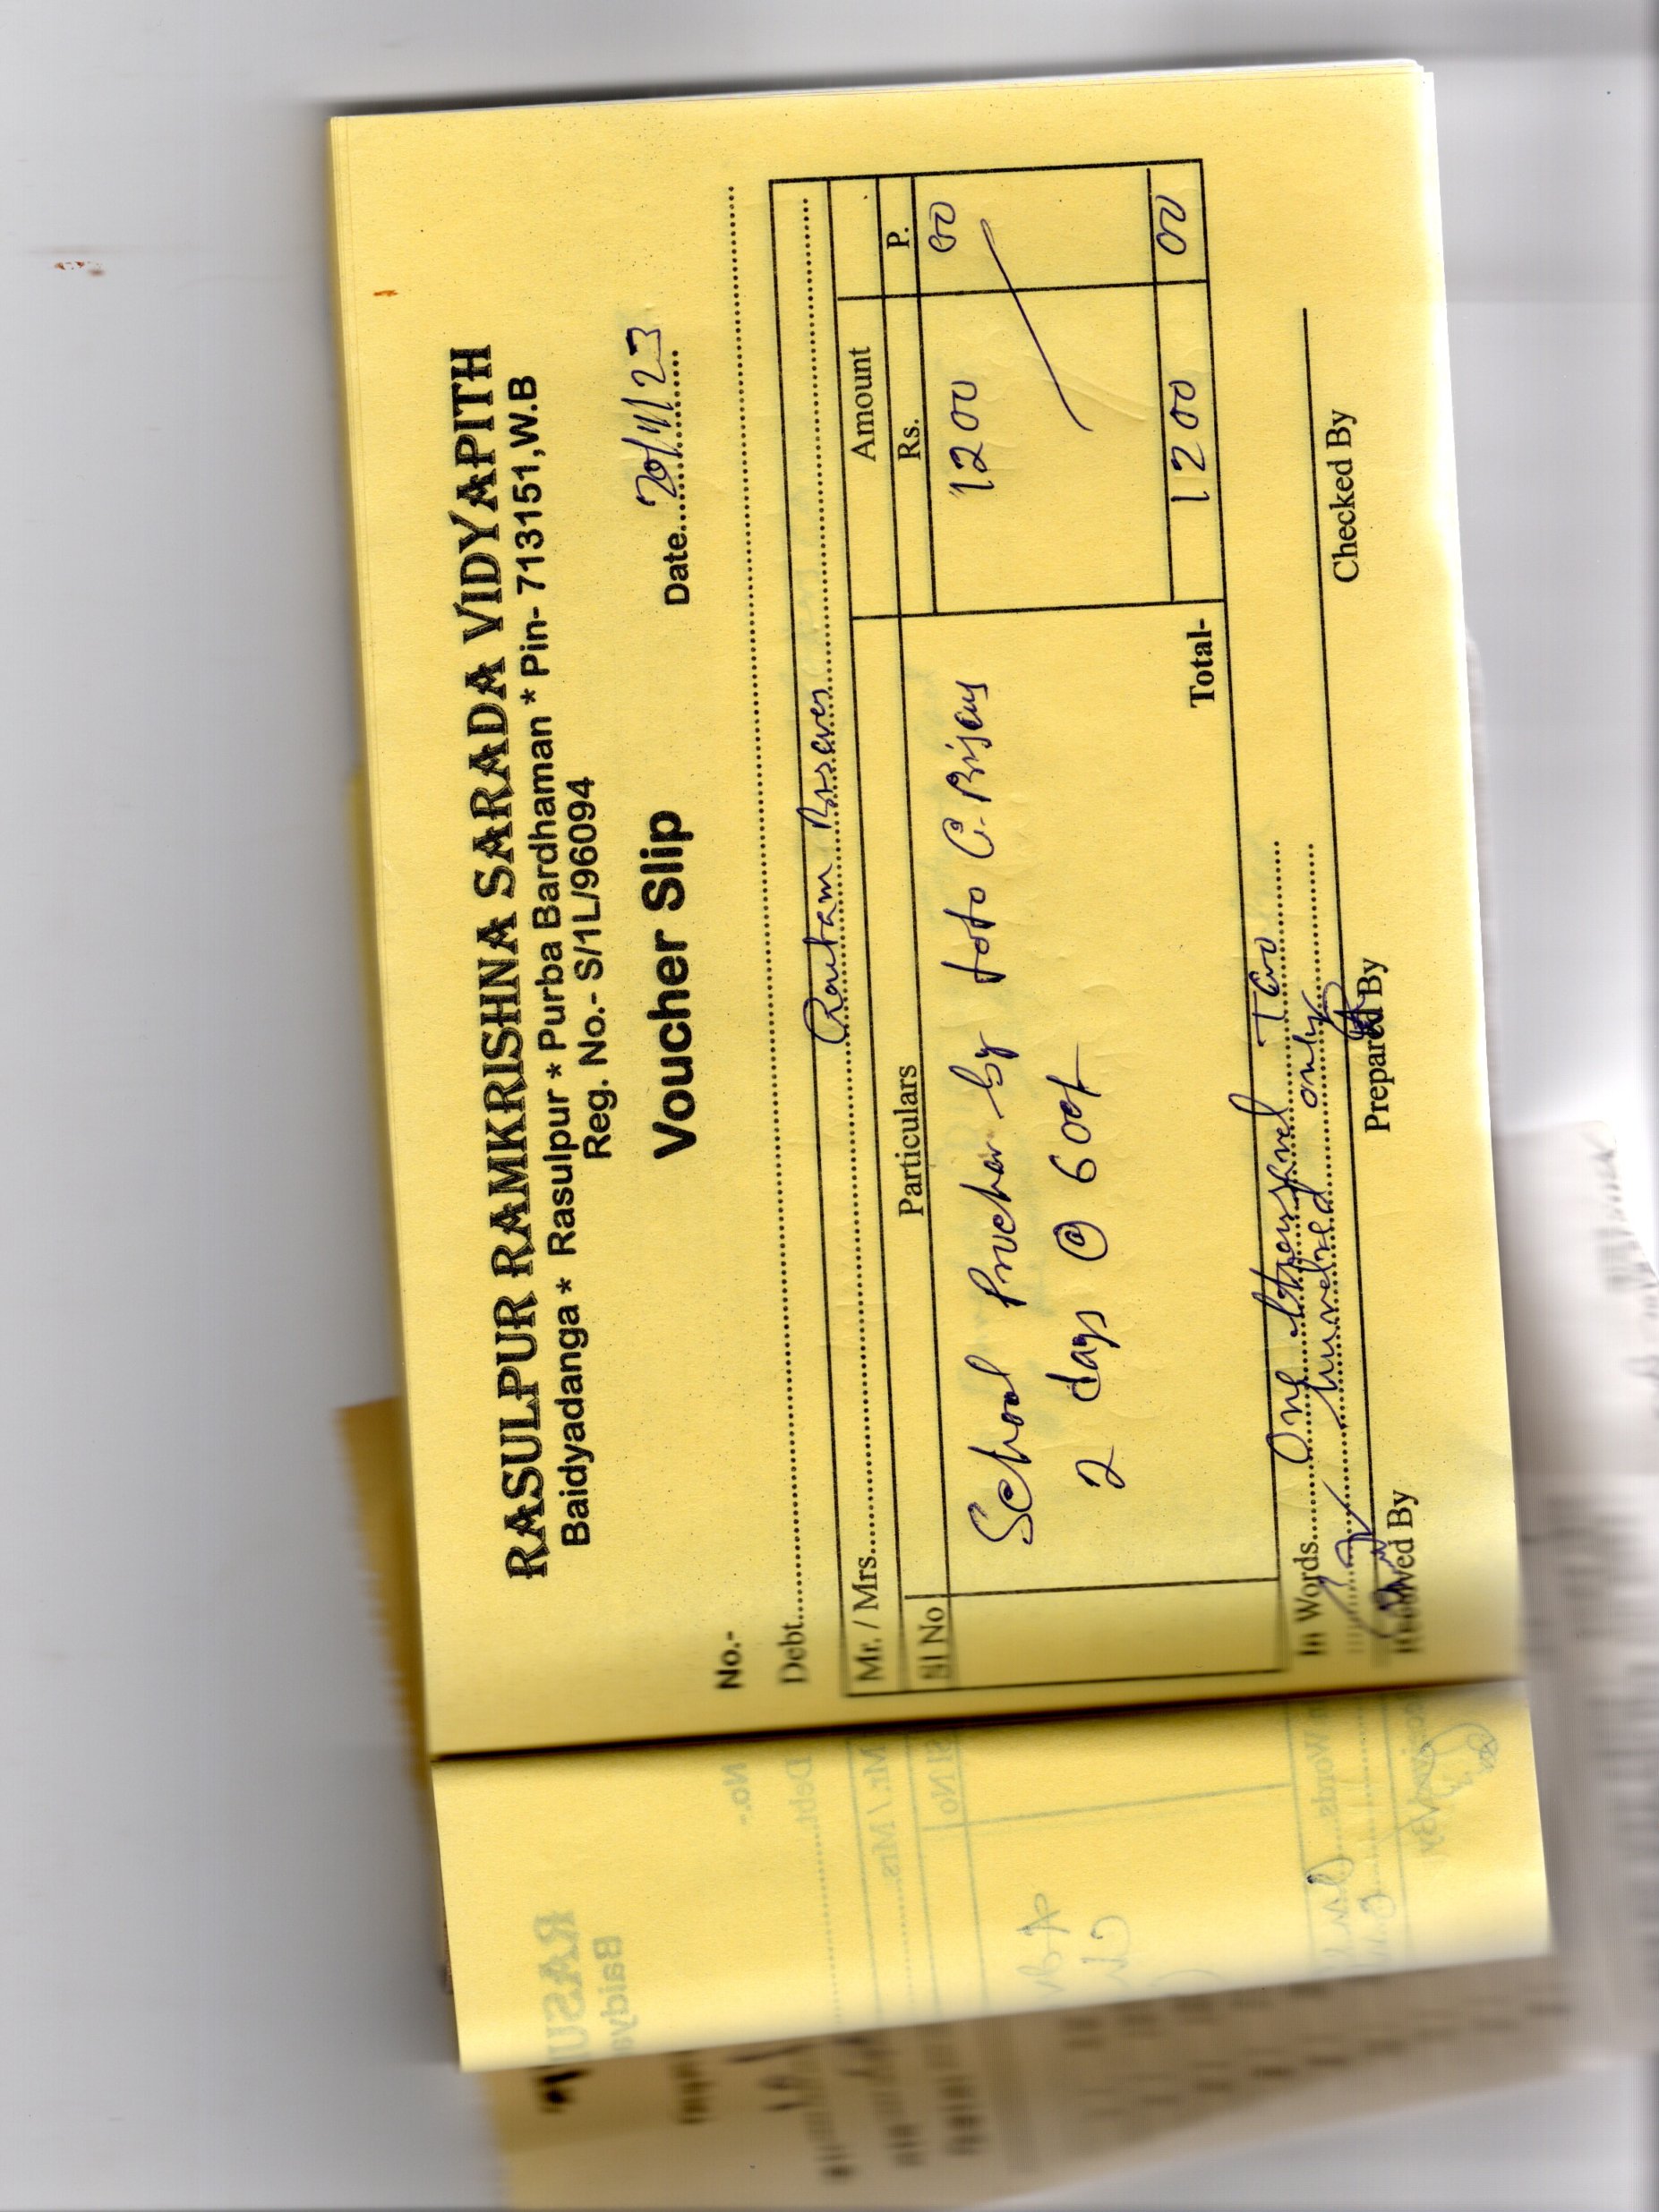 RASULPUR RAMKRISHNA SARADA VIDYAPITH
Baidyadanga * Rasulpur * Purba Bardhaman * Pin- 713151,W.B
Reg. No.- S/1L/96094
Voucher Slip
No.- Date...20/11/23
Debt
Mr. / Mrs.
Sl No Particulars Amount
Rs. P.
School by toto 1200 00
2 days @ 600
Total- 1200 00
In Words One thousand Two
hundred only
Received By Prepared By Checked By